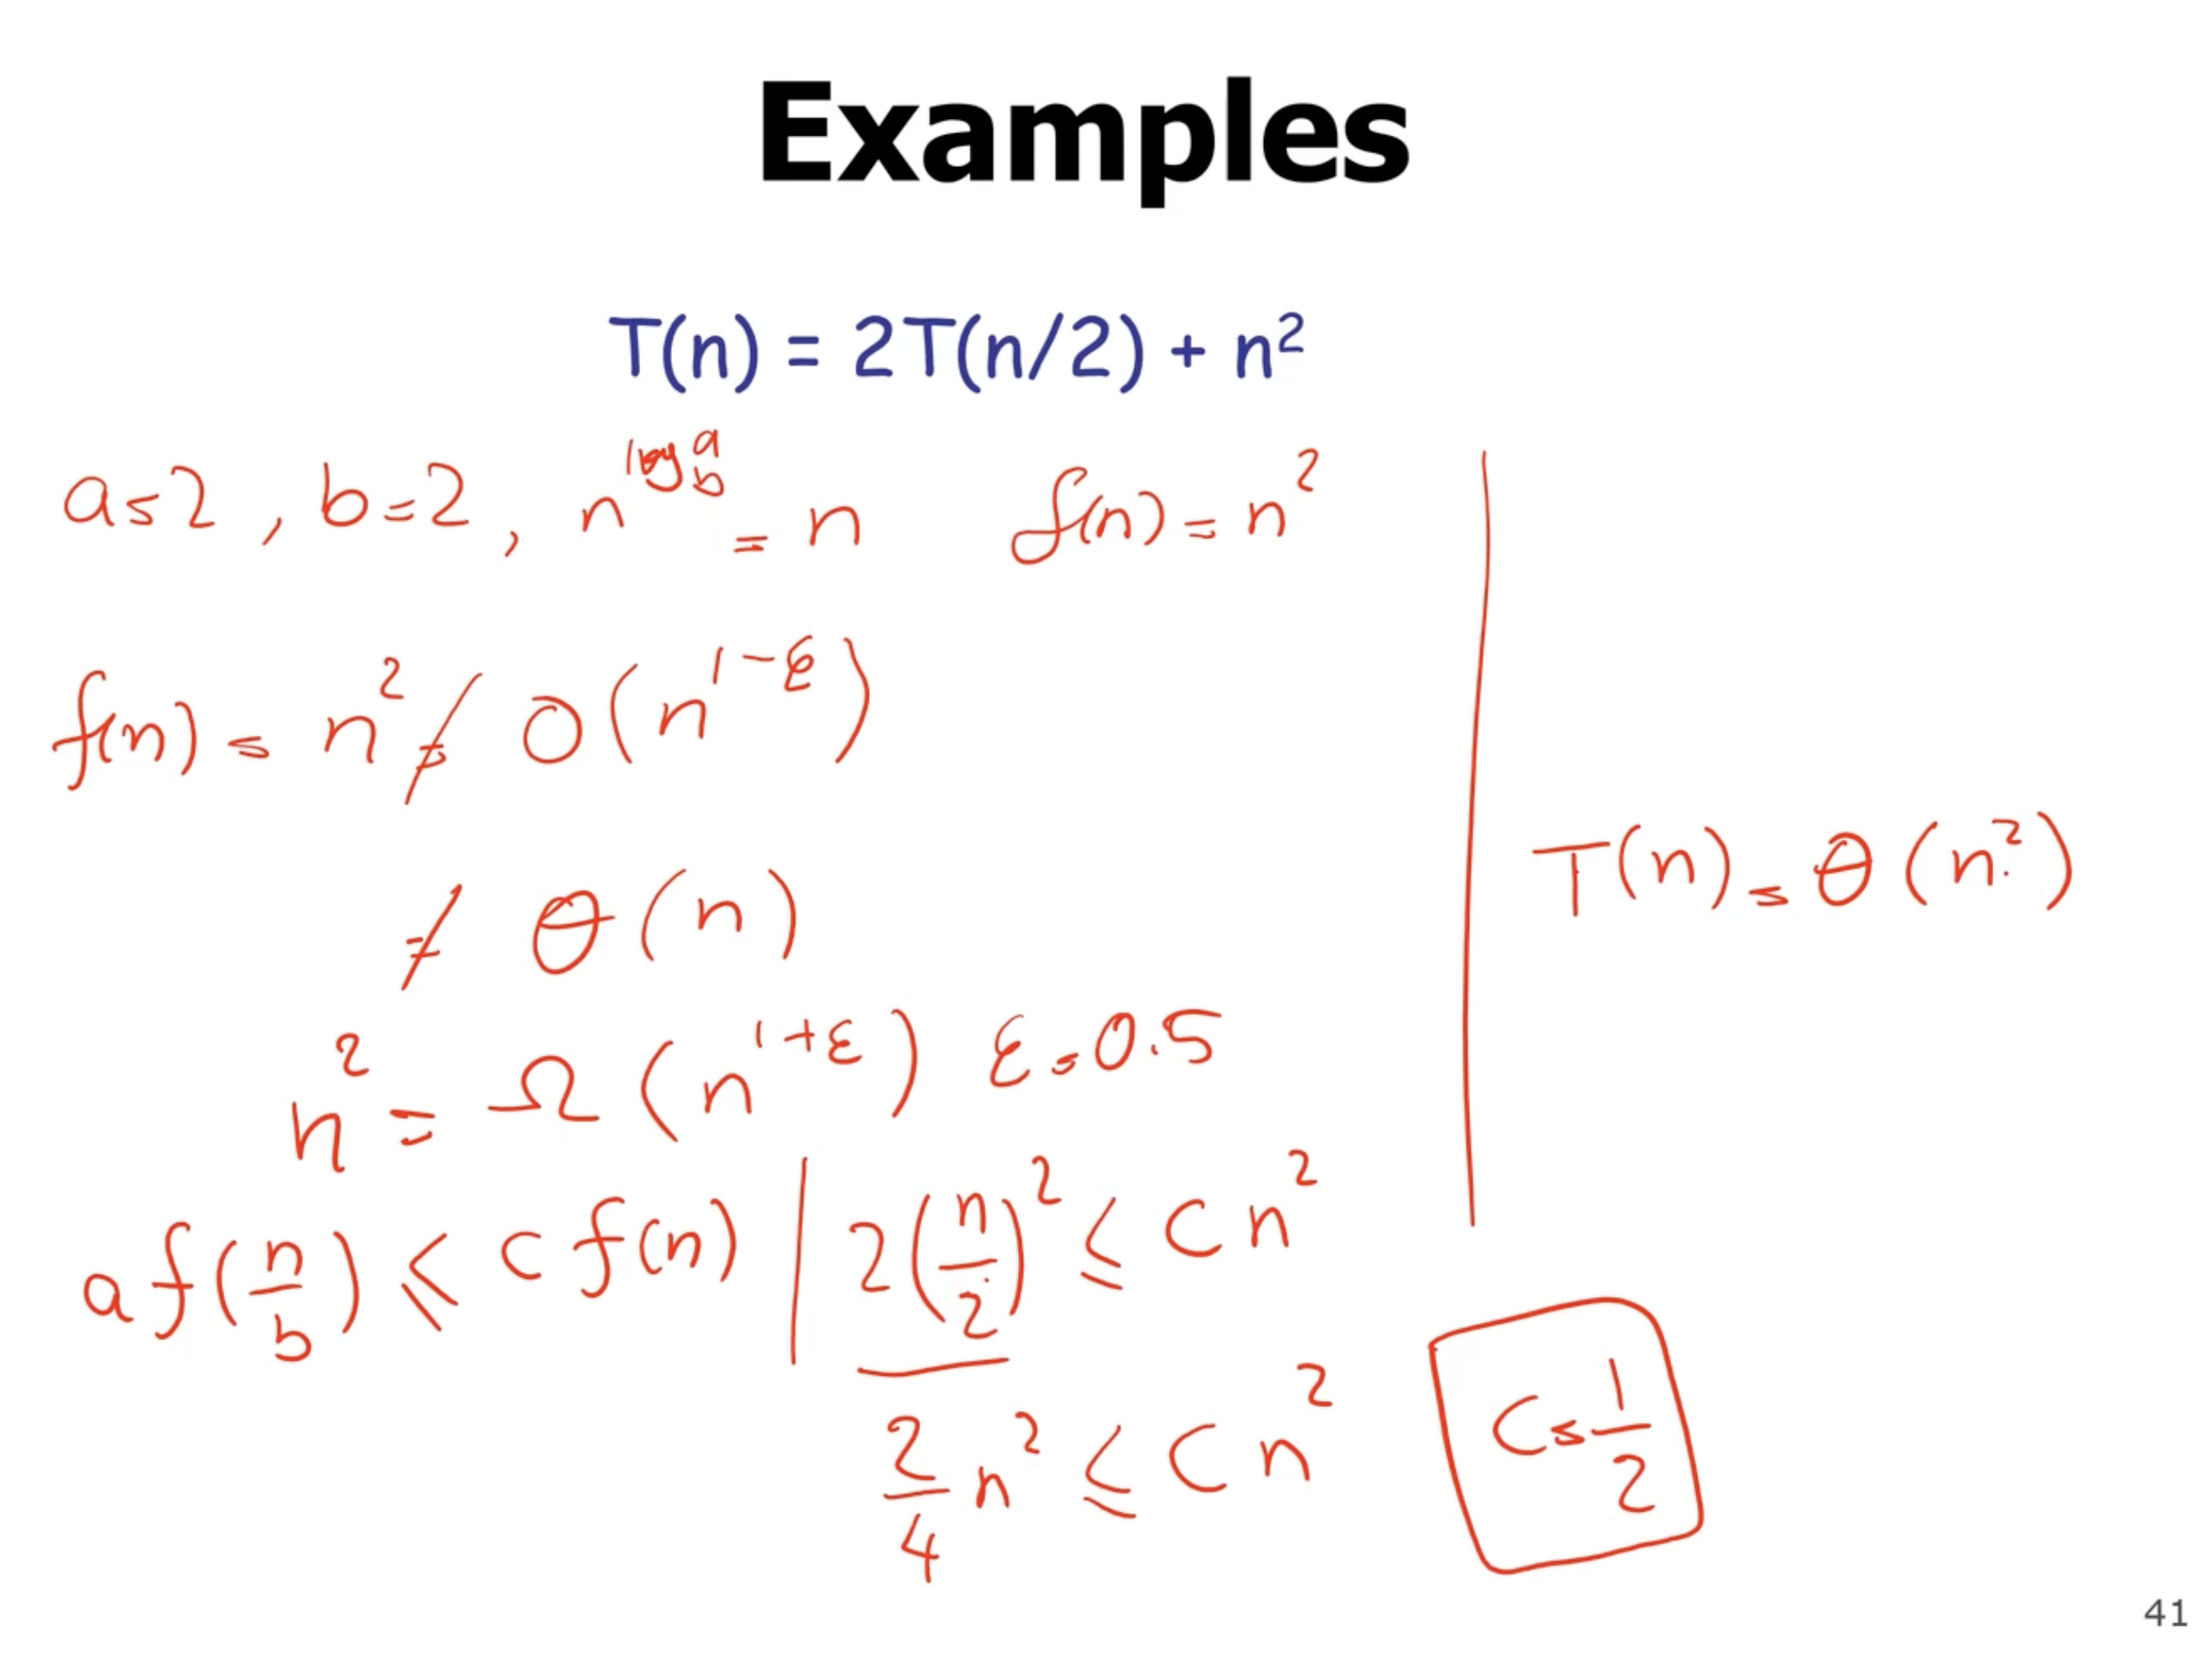 Examples
T(n) = 2T(n/2) + n²
a=2 , b=2 , n^(log_b a) = n    f(n) = n²
f(n) = n² ≠ O(n^(1-ε))
≠ Θ(n)
n² = Ω(n^(1+ε)) ε=0.5
a f(n/b) ≤ c f(n) | 2(n/2)² ≤ c n²
2/4 n² ≤ c n²
c=1/2
T(n) = Θ(n²)
41